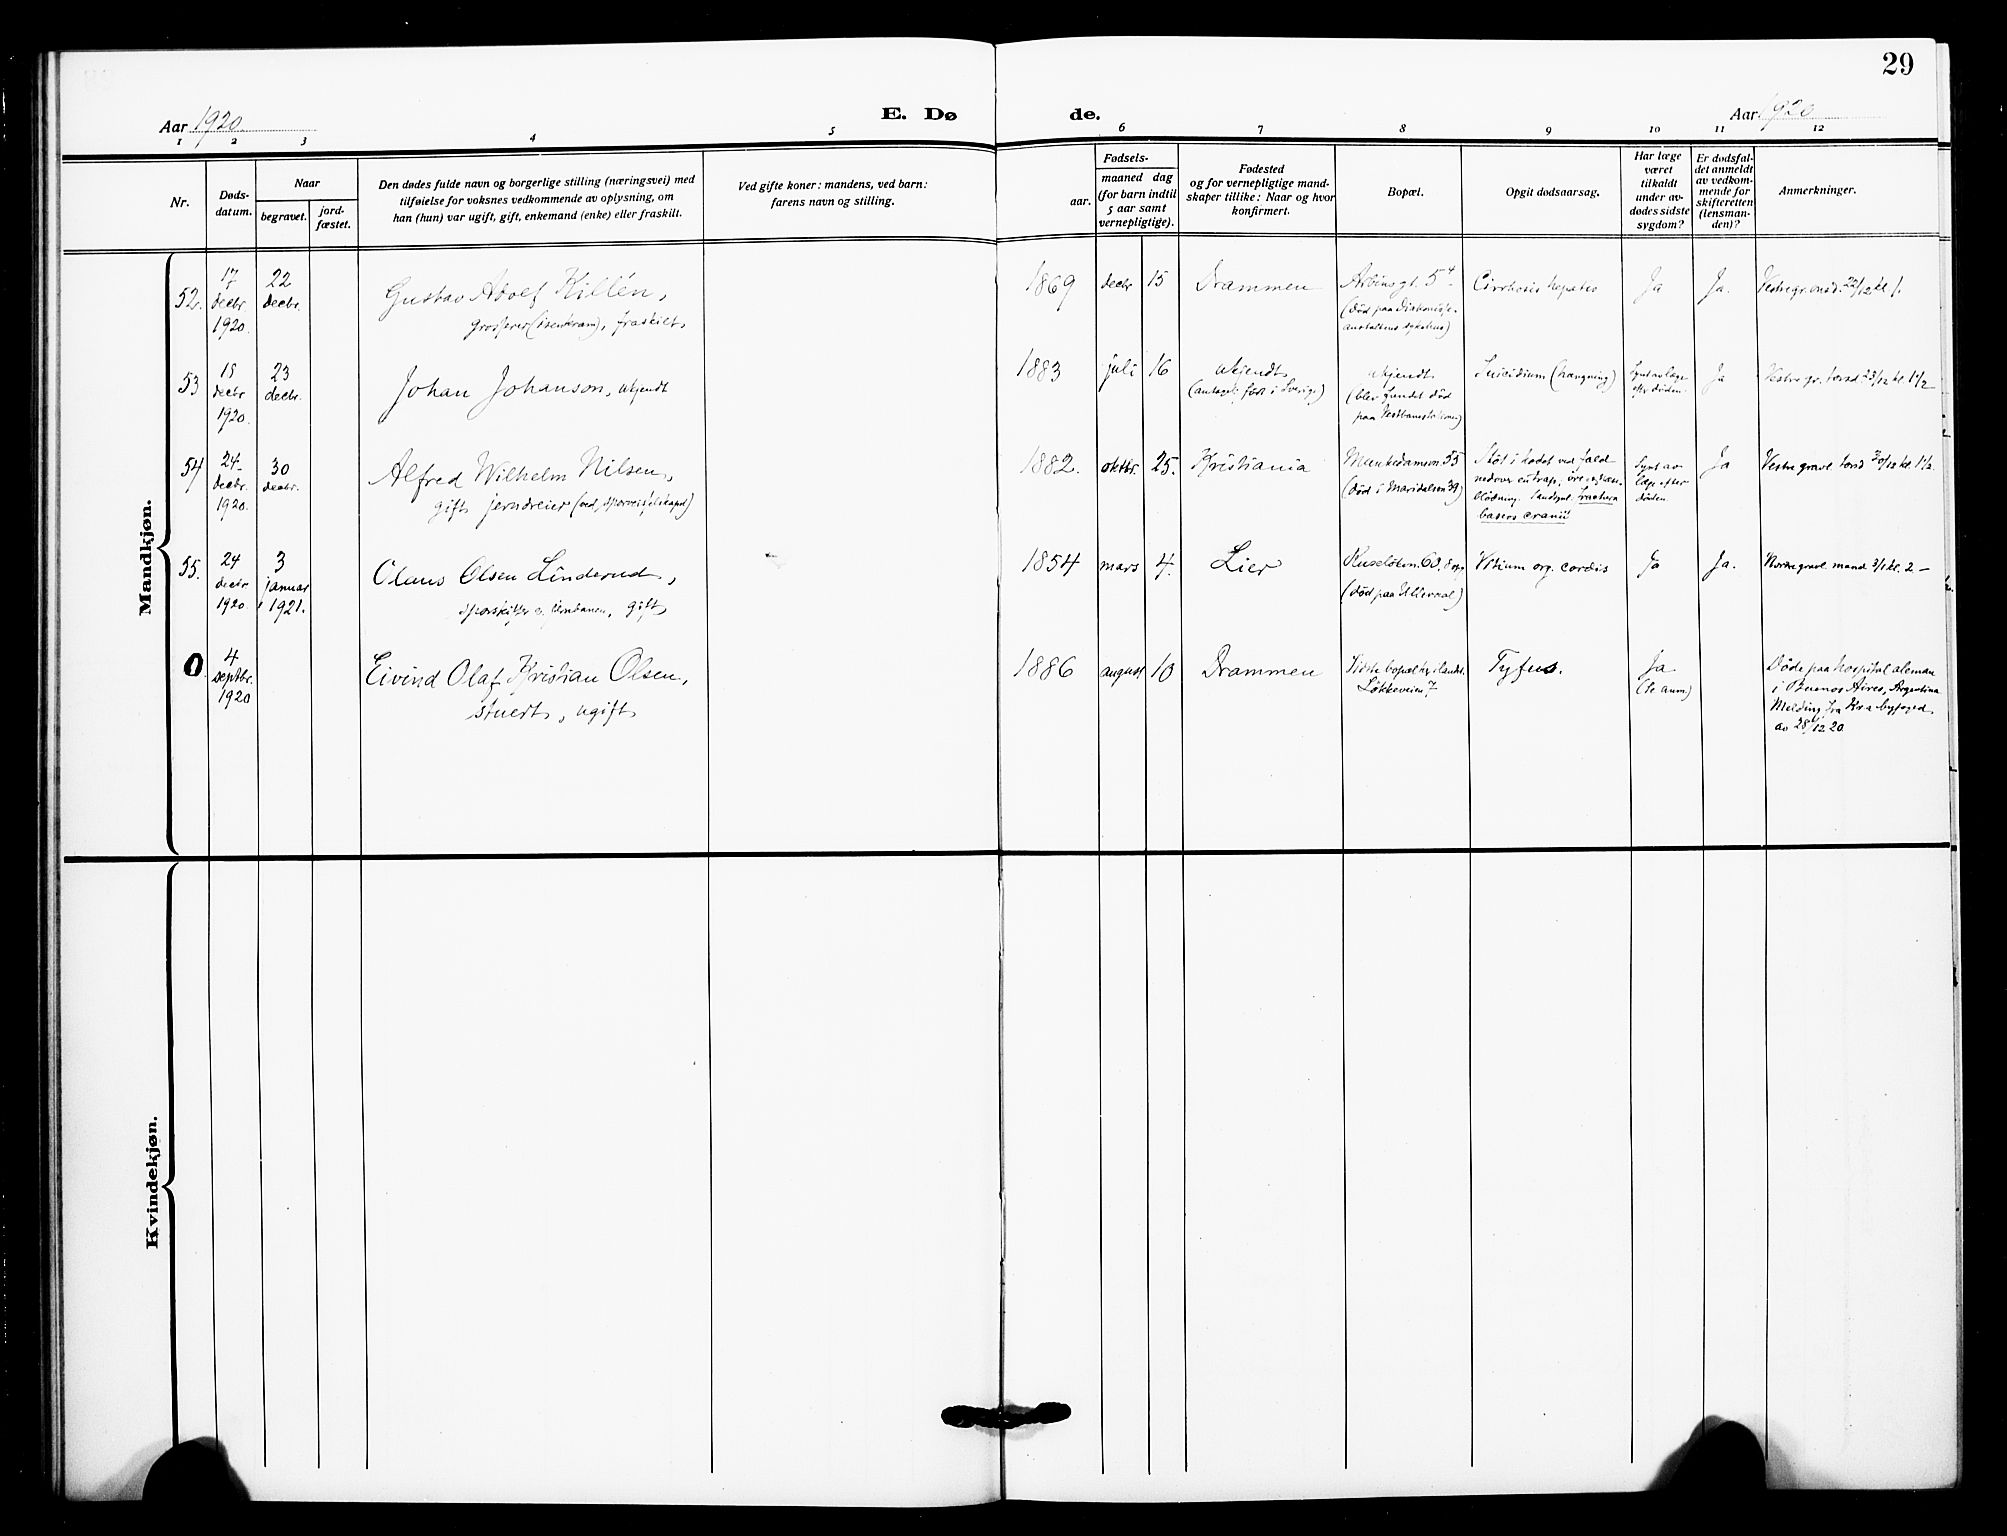 29
Aar 1920
E. Dø
de.
Aar 1920
1 2 3 4 5 6 7 8 9 10 11 12
Nr.
Døds-
datum.
Naar
begravet.
jord-
fæstet.
Den dødes fulde navn og borgerlige stilling (næringsvei) med
tilføielse for voksnes vedkommende av oplysning, om
han (hun) var ugift, gift, enkemand (enke) eller fraskilt.
Ved gifte koner: mandens, ved barn:
farens navn og stilling.
Fødsels-
aar.
maaned dag
(for barn indtil
5 aar samt
vernepligtige).
Fødested
og for vernepligtige mand-
skaper tillike: Naar og hvor
konfirmert.
Bopæl.
Opgit dødsaarsag.
Har læge
været
tilkaldt
under av-
dødes sidste
sygdom?
Er dødsfal-
det anmeldt
av vedkom-
mende for
skifteretten
(lensman-
den)?
Anmerkninger.
Mandkjøn.
52.
17
decbr.
1920.
22
decbr.
Gustav Adolf Killén,
grosserer (isenkram), fraskilt
1869 decbr 15
Drammen
Arbinsgt. 5
(død paa Diakonisse-
anstaltens sykehus)
Cirrhosis hepatis
Ja
Ja.
Vestre gr. onsd. 22/12 kl 1.
53
18
decbr
1920.
23
decbr.
Johan Johanson, ukjendt
1883 juli 16
ukjendt
(antagel. født i Sverige)
ukjendt
(blev fundet død
paa Vestbanestationen)
Suicidium (hængning)
Synt av læge
eftr døden
Ja
Vestre gr. torsd 23/12 kl. 1 1/2
54
24
decbr.
1920.
30
decbr.
Alfred Wilhelm Nilsen,
gift jerndreier (ved sporveisselskapet)
1882. oktbr. 25.
Kristiania
Munkedamsvn. 55
(død i Maridalsvn 39)
Støt i hodet ved fald
nedover en trap;
blødning. fractura
baseos cranii
Synt av
læge efter
døden
Ja
Vestre gravl. torsd 30/12 kl. 1 1/2.
55.
24
decbr
1920
3
januar
1921.
Olaus Olsen Linderud,
sporskifter v. jernbanen, gift
1854 mars 4.
Lier
Ruseløkvn. 60,
(død paa Ullevaal)
Vitium org. cordis
Ja
Ja.
Nordre gravl. mand 3/1 kl. 2 –
0
4
septbr.
1920
Eivind Olaf Kristian Olsen,
stuert, ugift
1886 august 10
Drammen
Sidste bopæl her i landet
Løkkeveien 7
Tyfus.
Ja
(se anm)
Døde paa hospital aleman
i Buenos Aires, Argentina
Melding fra Kra byfoged
av 28/12 20.
Kvindekjøn.